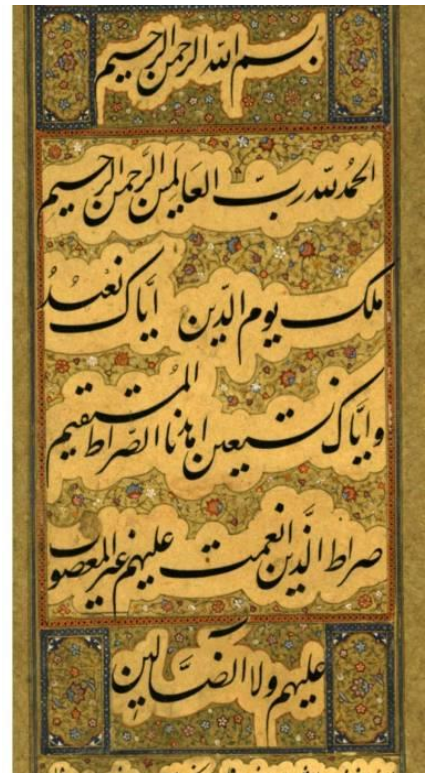 بسم الله الرحمن الرحیم
الحمدُ لله ربّ العالمَین الرَّحمن الرحیم
ملک یوم الدّین ایّاک نعْبُدُ
وایّاک نستعین اهدنا الصّراط المُستقیم
صراط الَّذین انعمت علیهم غیر المغضوب
علیهم ولا الضَّالین